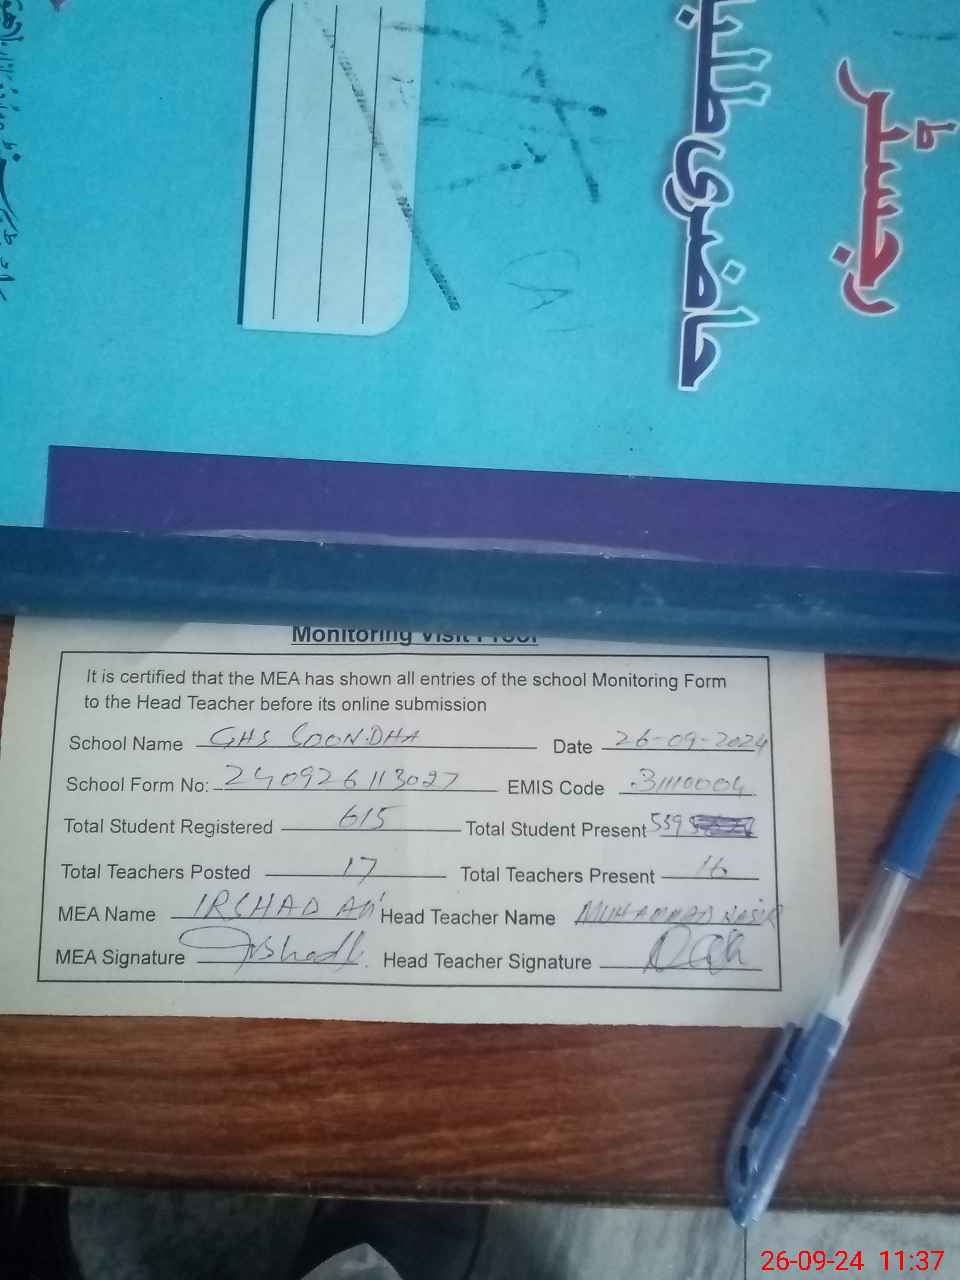 رجسٹر
حاضری طلبا
Monitoring Visit Proof
It is certified that the MEA has shown all entries of the school Monitoring Form
to the Head Teacher before its online submission
School Name GHS SOONDHA Date 26-09-2024
School Form No: 240926113027 EMIS Code 31110004
Total Student Registered 615 Total Student Present 559
Total Teachers Posted 17 Total Teachers Present 16
MEA Name IRSHAD Ali Head Teacher Name MUHAMMAD NASIR
MEA Signature Irshad Head Teacher Signature
26-09-24 11:37